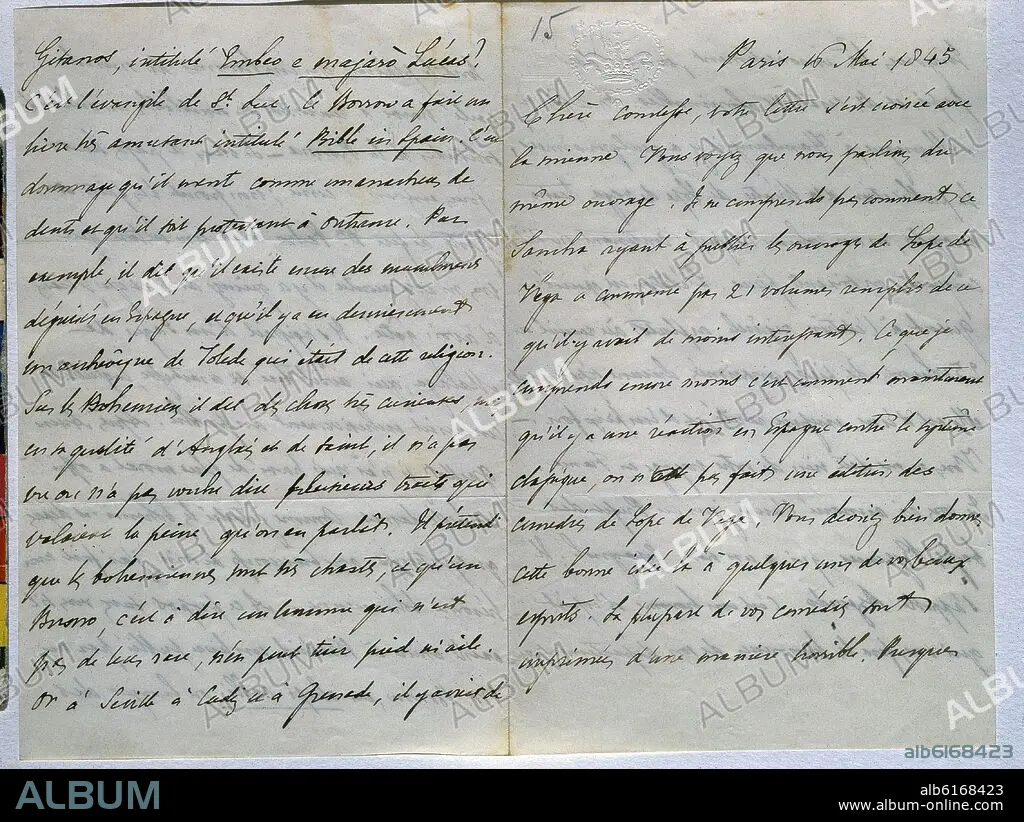 15
Paris 16 Mai 1845
Chère comtesse, votre lettre s'est croisée avec
la mienne. Vous voyez que nous parlions du
même ouvrage. Je ne comprends pas comment ce
Sancha ayant à publier les ouvrages de Lope de
Vega a commencé par 21 volumes remplis de ce
qu'il y avait de moins intéressant. Ce que je
comprends encore moins c'est comment maintenant
qu'il y a une réaction en Espagne contre le système
classique on n'ait pas fait une édition des
comedias de Lope de Vega. Vous devriez bien donner
cette bonne idée là à quelques uns de vos beaux
esprits. La plupart de vos comédies sont
imprimées d'une manière horrible. Presque
Gitanos, intitulé Embeo e majarò Lucas?
C'est l'évangile de St. Luc. Ce Borrow a fait un
livre très amusant intitulé Bible in Spain. C'est
dommage qu'il mente comme un arracheur de
dents et qu'il soit protestant à outrance. Par
exemple, il dit qu'il existe encore des musulmans
déguisés en Espagne, et qu'il y a eu dernièrement
un archevêque de Tolede qui était de cette religion.
Sur les Bohémiens il dit des choses très curieuses, mais
en sa qualité d'Anglais et de saint, il n'a pas
vu ou n'a pas voulu dire plusieurs traits qui
valaient la peine qu'on en parlât. Il prétend
que les bohémiennes sont très chastes, et qu'un
Busno, c'est à dire un homme qui n'est
pas de leur race, n'en peut tirer pied ni aile.
Or à Seville à Cadiz et à Grenade, il y avait de
ALBUM
alb6168423
ALBUM
alb6168423
www.album-online.com